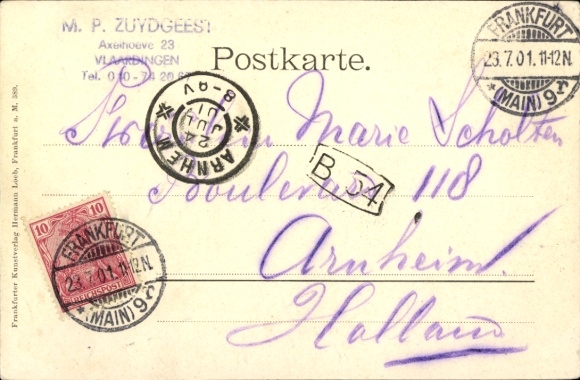 M. P. ZUYDGEEST
Axelhoeve 23
VLAARDINGEN
Tel. 010-74 20 67
Postkarte.
FRANKFURT
23.7.01.11-12N.
* (MAIN) 9 *
ARNHEM
24
JUL
01
8-9V
Marie Scholten
B 54
Boulevard 118
Arnheim.
Holland
10
REICHSPOST
FRANKFURT
23.7.01.11-12N.
* (MAIN) 9 *
Frankfurter Kunstverlag Hermann Loeb, Frankfurt a. M. 589.